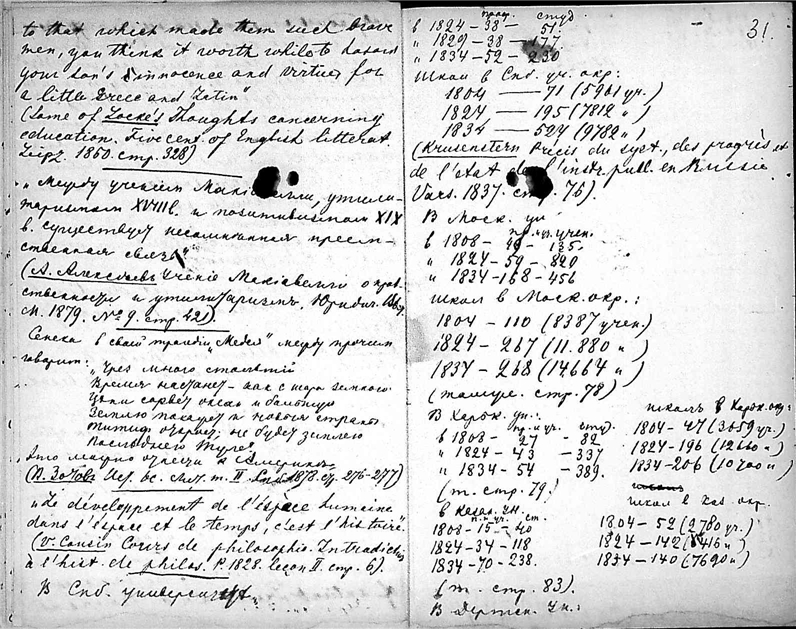 to that which made them such brave
men, you think it worth while to hasard
your son's innocence and virtue for
a little Greec and Latin"
(Some of Locke's Thoughts concerning
education. Five cent. of English litterat.
Leipz. 1860. стр. 328)
"Между ученіем Макіавелли, утили-
таризмом XVIII в. и позитивизмом XIX
в. существует несомненная преем-
ственная связь"
(А. Алексѣевъ Ученіе Макіавелли о нрав-
ственности и утилитаризмъ. Юридич.
М. 1879. No 9. стр. 421)
Сенека в своей трагедіи "Медея" между прочим
говорит:
"Чрез много столѣтій
Время настанет - как с шара земного
Цѣпи сорвет океан и
Землю покажет и новыя страны
откроет; не будет землею
Послѣднею Туле"
Это можно отнести к Америкѣ
(В. Зотовъ Ист. вс. лит. т. II. Спб. 1878. стр. 276-277)
"Le développement de l'espèce humaine
dans l'espace et le temps, c'est l'histoire".
(V. Cousin Cours de philosophie. Introduction
à l'hist. de philos. P. 1828. leçon II. стр. 6).
В Спб. университ.
31.
студ
в 1824 - 38 - 51.
" 1829 - 38 - 177
" 1834 - 52 - 230
Школ в Спб. уч. окр:
1804 — 71 (5961 уч.)
1824 — 195 (7812 ")
1834 — 524 (9782 ")
(Krusenstern Précis du syst., des progrès et
de l'état de l'instr. publ. en Russie
Vars. 1837. стр. 75).
В Моск. ун
учен.
в 1808 - 49 - 135.
" 1824 - 54 - 820
" 1834 - 168 - 456
школ в Моск. окр.:
1804 - 110 (8387 учен.)
1824 - 267 (11.880 ")
1834 - 268 (14664 ")
(там же. стр. 78)
В Харьк. ун.:
студ.
в 1808 - 27 - 82
" 1824 - 43 - 337
" 1834 - 54 - 389.
(т. стр. 79.)
школъ в Харьк. окр:
1804 - 47 (3659 уч.)
1824 - 196 (12660 ")
1834 - 206 (10700 ")
в Казан. ун.
ст.
1808 - 15 - 40
1824 - 34 - 118
1834 - 70 - 238.
школ в Каз. окр.
1804 - 52 (2780 уч.)
1824 - 142
1834 - 140 (7690 ")
(т. стр. 83).
В Дерптск. Ун.: